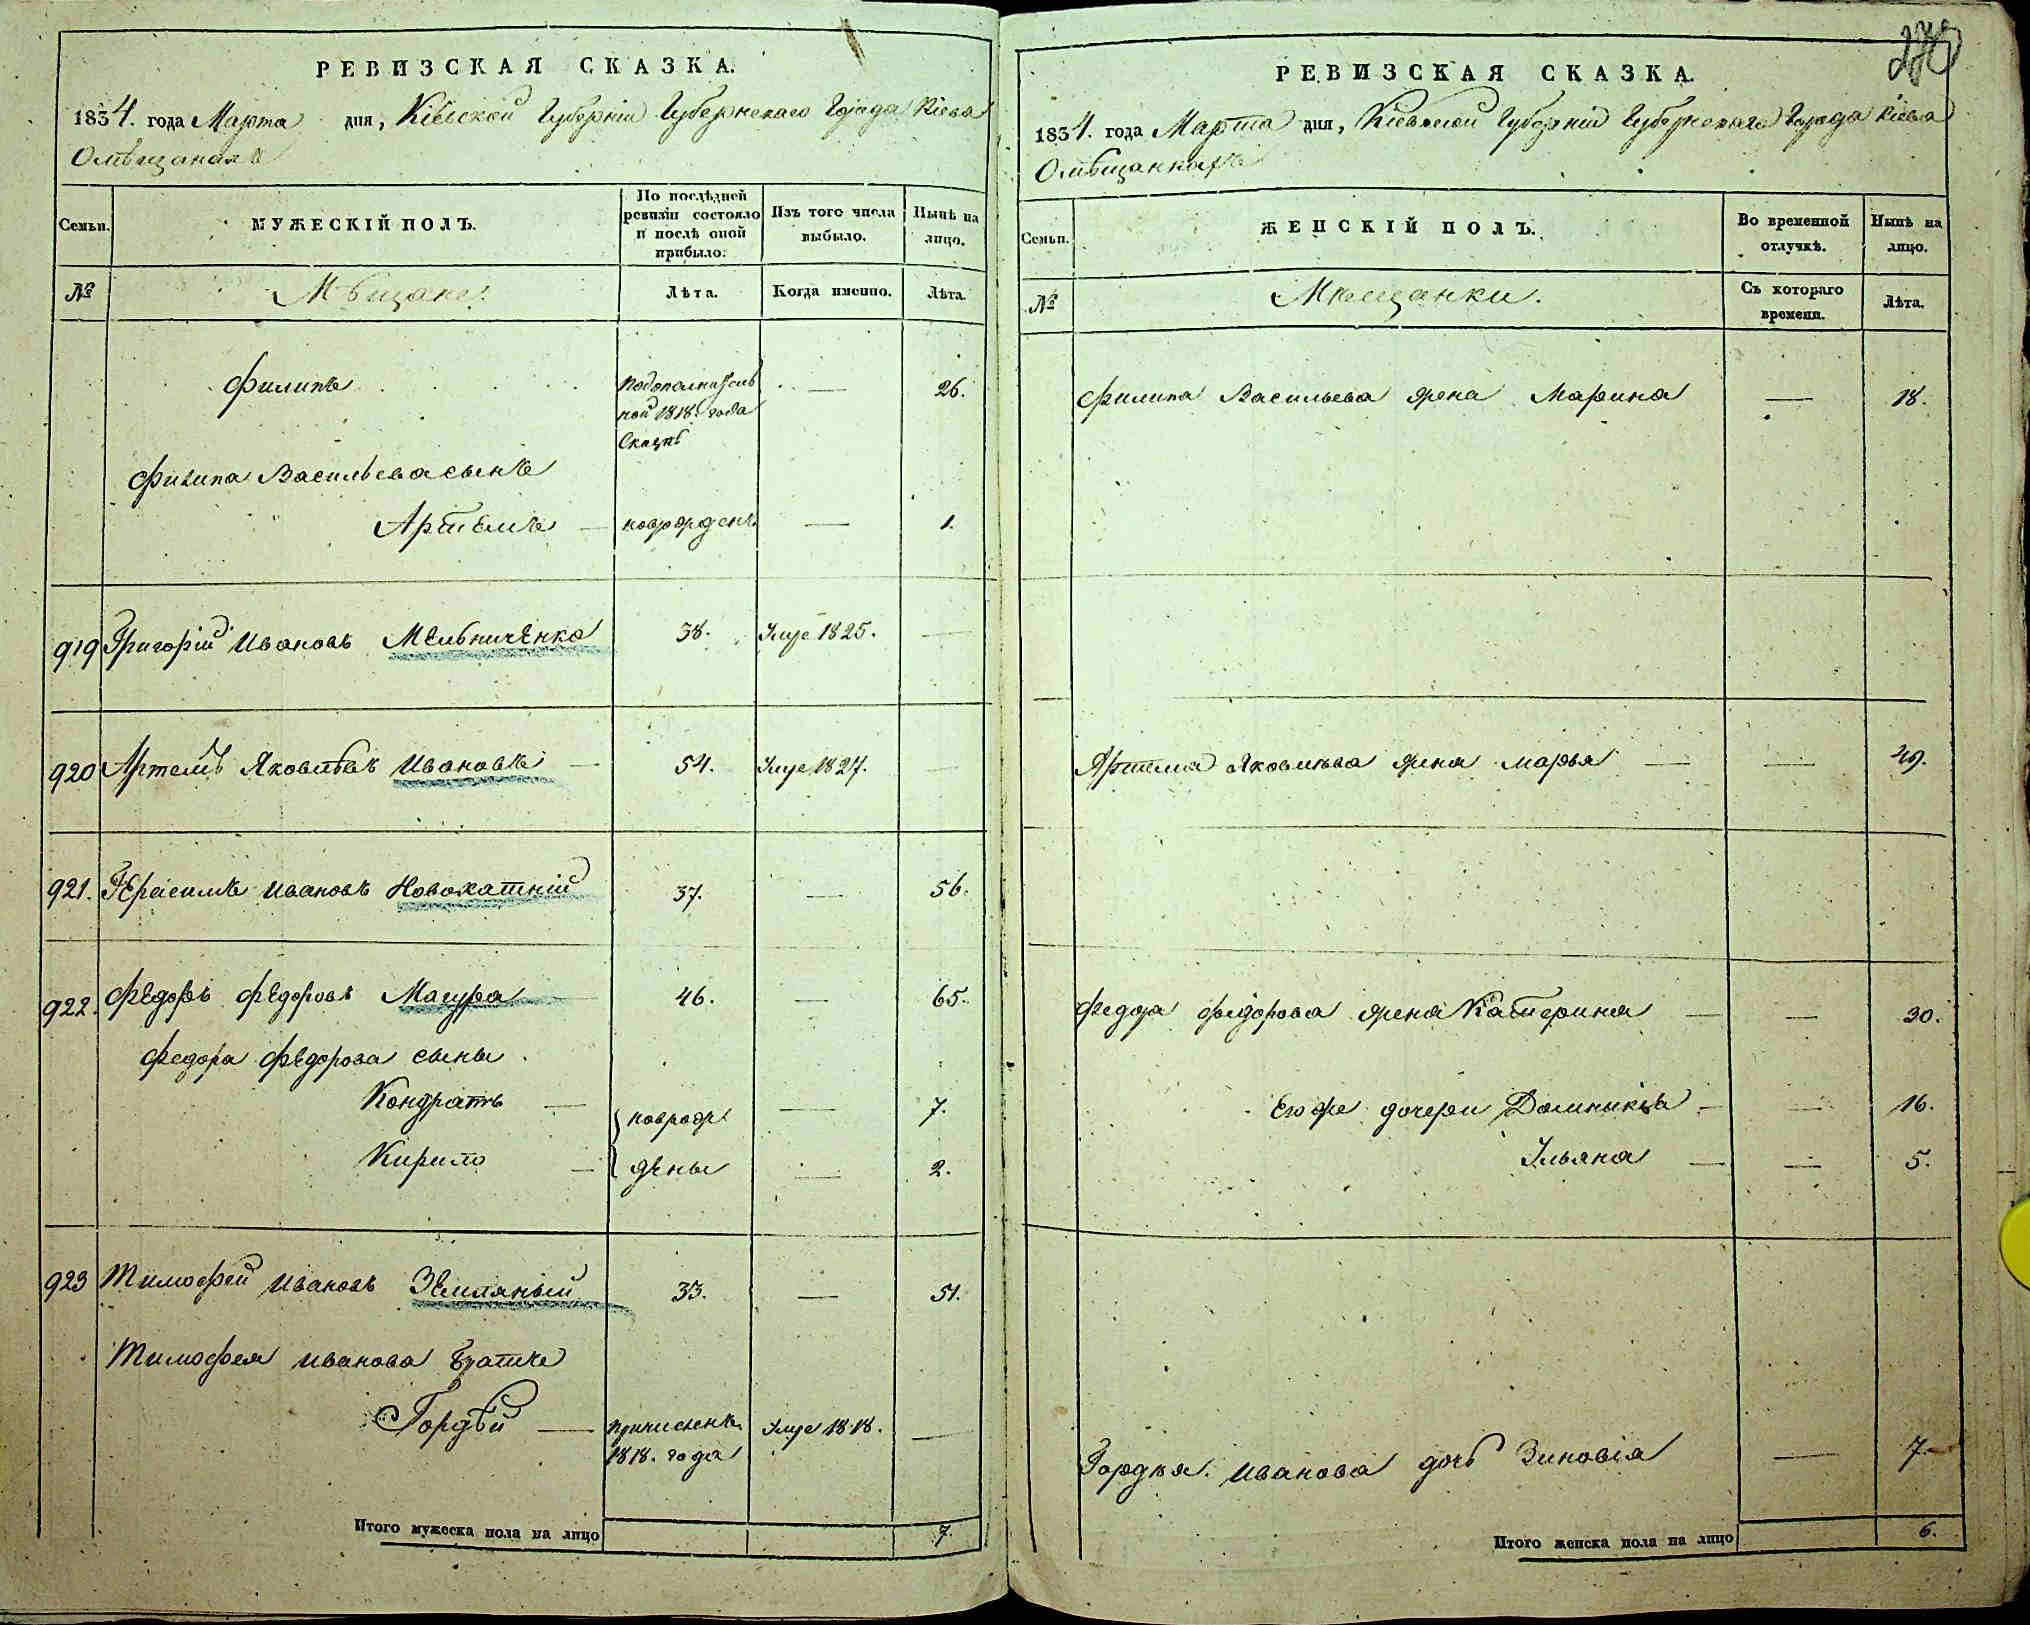 РЕВИЗСКАЯ СКАЗКА.
1834. года Марта дня, Кіевской Губерніи Губернскаго Города Кіева
О мѣщанахъ
Семьи.
МУЖЕСКІЙ ПОЛЪ.
По послѣдней ревизіи состояло и послѣ оной прибыло.
Изъ того числа выбыло.
Нынѣ на лицо.
№
Мѣщане.
Лѣта.
Когда именно.
Лѣта.
Филипъ подополнитель — 26.
ной 1818. года
Сказкѣ
Филипа Васильева сынъ
Артемъ — новорожденъ — 1.
919 Григорій Ивановъ Мельниченко 38. Умре 1825. —
920 Артемъ Яковлевъ Ивановъ — 54. Умре 1827.
921. Герасимъ Ивановъ Новохатній 37. — 56.
922. Федоръ Федоровъ Магура — 46. — 65.
Федора Федорова сыны
Кондратъ — новорож — 7.
Кирило — дены — 2.
923 Тимофей Ивановъ Земляный 33. — 51.
Тимофея Иванова братъ
Гордѣй — причисленъ Умре 1818. —
1818. года
Итого мужеска пола на лицо 7.
РЕВИЗСКАЯ СКАЗКА.
1834. года Марта дня, Кіевской Губерніи Губернскаго Города Кіева
О мѣщанкахъ
Семьи.
ЖЕНСКІЙ ПОЛЪ.
Во временной отлучкѣ.
Нынѣ на лицо.
№
Мѣщанки.
Съ котораго времени.
Лѣта.
Филипа Васильева жена Марина — 18.
Артема Яковлева жена Марья — — 49.
Федора Федорова жена Катерина — — 30.
Его же дочери Домникія — — 16.
Ульяна — — 5.
Гордея Иванова дочь Зиновія — 7.
Итого женска пола на лицо 6.